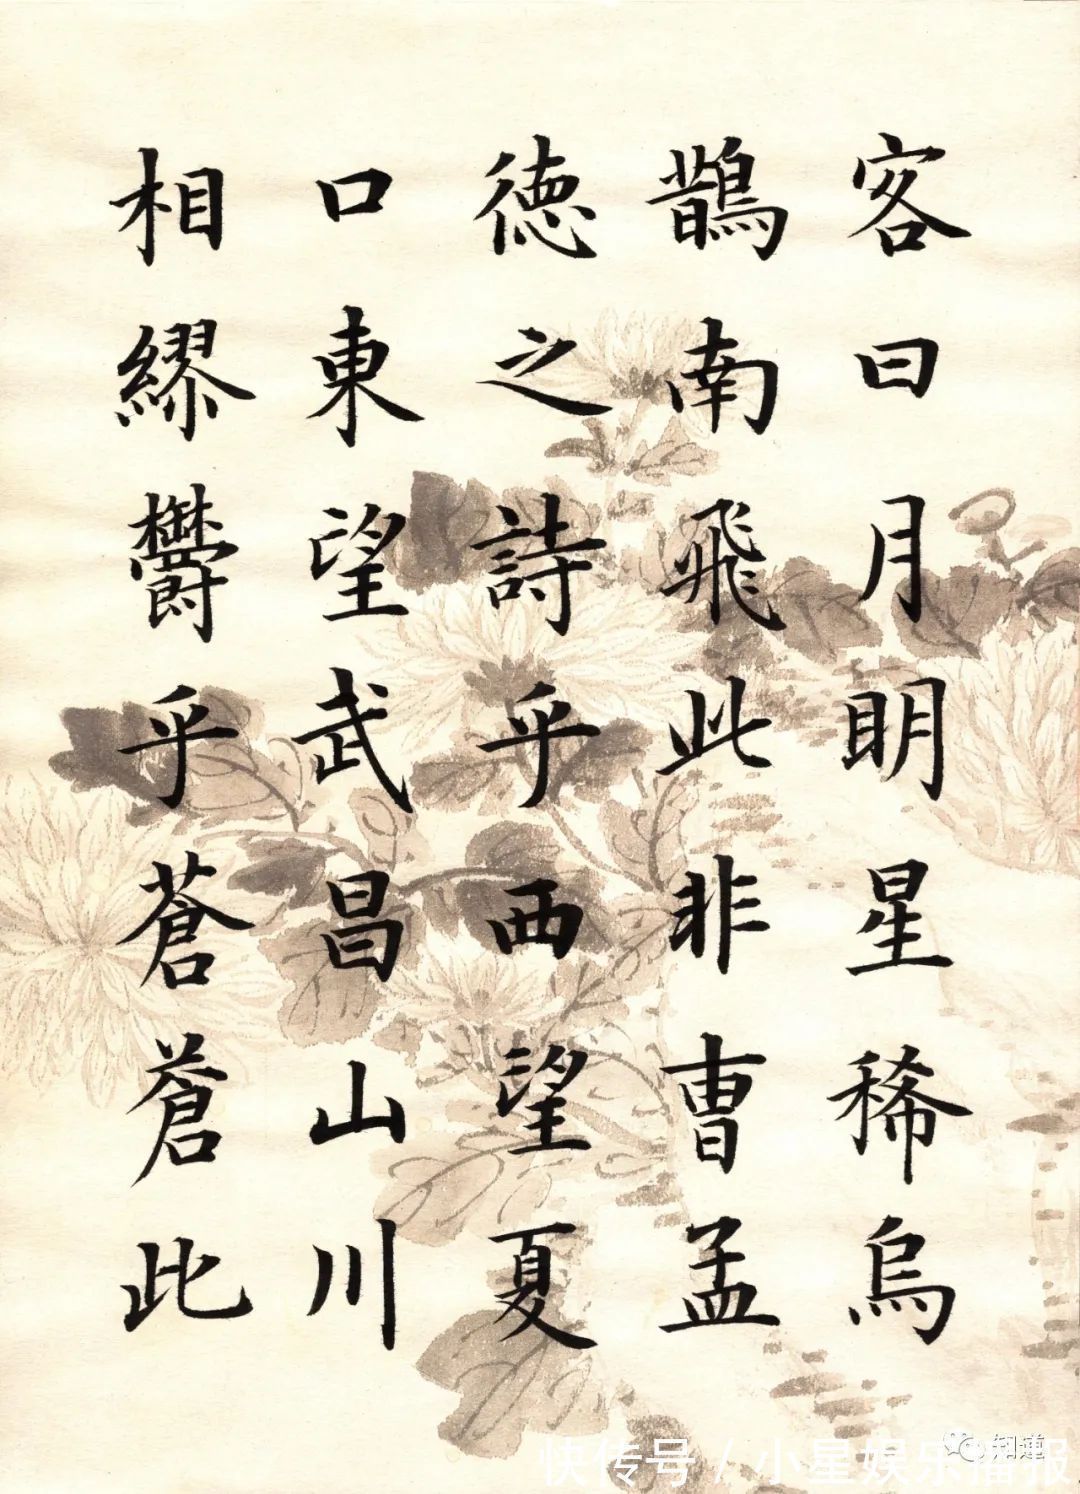 客曰月明星稀烏
鵲南飛此非曹孟
德之詩乎西望夏
口東望武昌山川
相繆鬱乎蒼蒼此
知蓮
快传号/小星娱乐播报